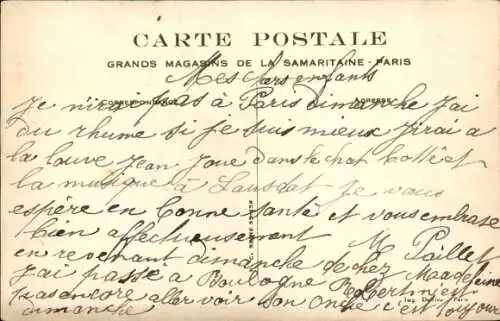 CARTE POSTALE
GRANDS MAGASINS DE LA SAMARITAINE - PARIS
Mes chers enfants
CORRESPONDANCE ADRESSE
Je n'irai pas à Paris dimanche J'ai
du rhume si je suis mieux J'irai a
la louve Jean Joue dans le chat botté et
la musique à Je vous
espère en bonne santé et vous embrase
bien affectueusement
M Paillet
en revenant dimanche de chez Madeleine
J'ai passé a Boulogne Robert n'est
pas encore aller voir son oncle c'est toujour
dimanche